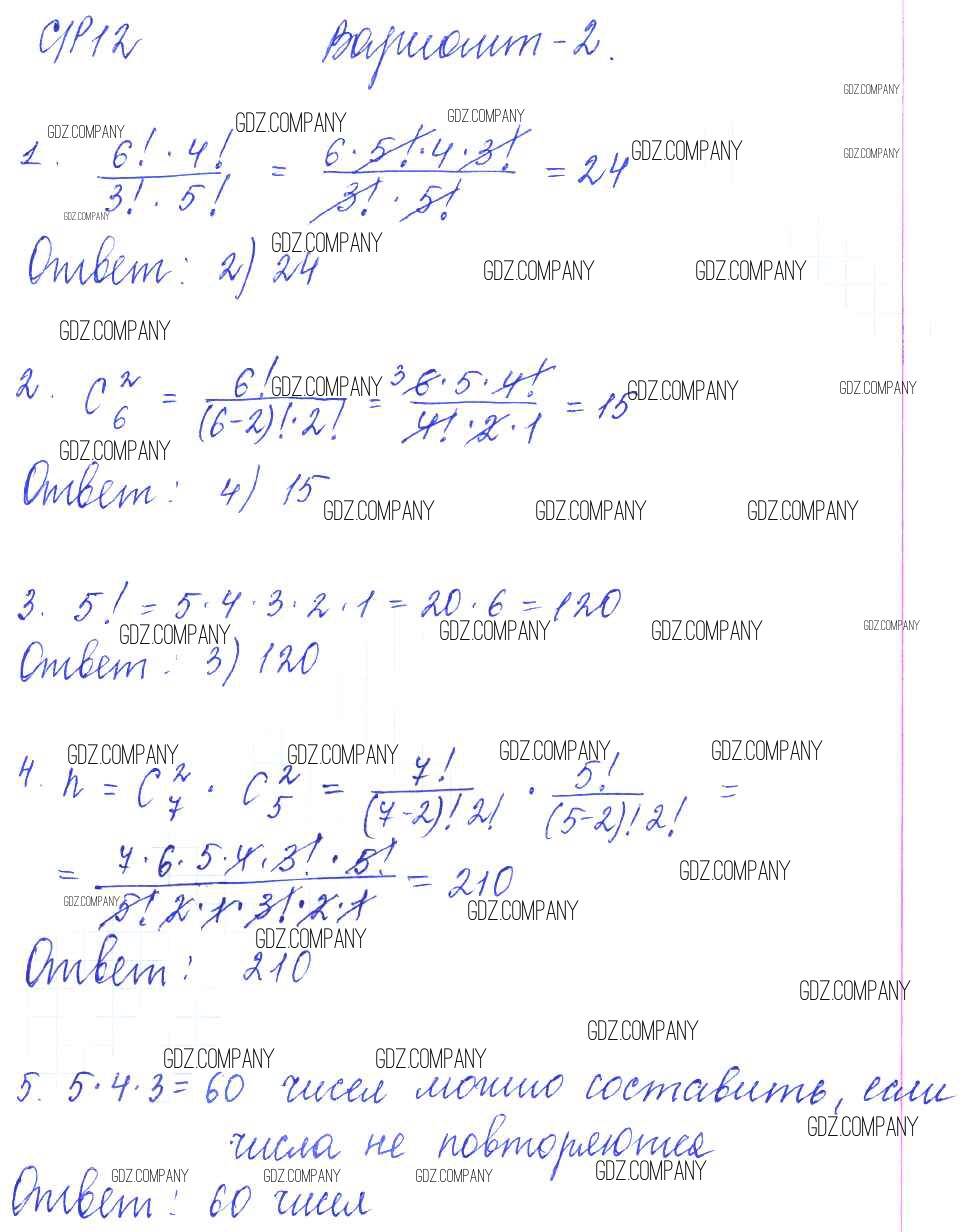 СР12 Вариант-2.
GDZ.COMPANY
GDZ.COMPANY GDZ.COMPANY GDZ.COMPANY
1. 6! · 4! / 3! · 5! = 6 · 5! · 4 · 3! / 3! · 5! = 24 GDZ.COMPANY GDZ.COMPANY
GDZ.COMPANY
GDZ.COMPANY
Ответ: 2) 24 GDZ.COMPANY GDZ.COMPANY
GDZ.COMPANY
2. C₆² = 6! / (6-2)! · 2! = ³6 · 5 · 4! / 4! · 2 · 1 = 15 GDZ.COMPANY GDZ.COMPANY GDZ.COMPANY
GDZ.COMPANY
Ответ: 4) 15 GDZ.COMPANY GDZ.COMPANY GDZ.COMPANY
3. 5! = 5 · 4 · 3 · 2 · 1 = 20 · 6 = 120
GDZ.COMPANY GDZ.COMPANY GDZ.COMPANY GDZ.COMPANY
Ответ: 3) 120
GDZ.COMPANY GDZ.COMPANY GDZ.COMPANY GDZ.COMPANY
4. n = C₇² · C₅² = 7! / (7-2)! 2! · 5! / (5-2)! 2! =
= 7 · 6 · 5 · 4 · 3! · 5! / 5! 2 · 1 · 3! · 2 · 1 = 210 GDZ.COMPANY
GDZ.COMPANY GDZ.COMPANY
GDZ.COMPANY
Ответ: 210
GDZ.COMPANY
GDZ.COMPANY
GDZ.COMPANY GDZ.COMPANY
5. 5 · 4 · 3 = 60 чисел можно составить, если
GDZ.COMPANY
числа не повторяются
GDZ.COMPANY GDZ.COMPANY GDZ.COMPANY GDZ.COMPANY
Ответ: 60 чисел